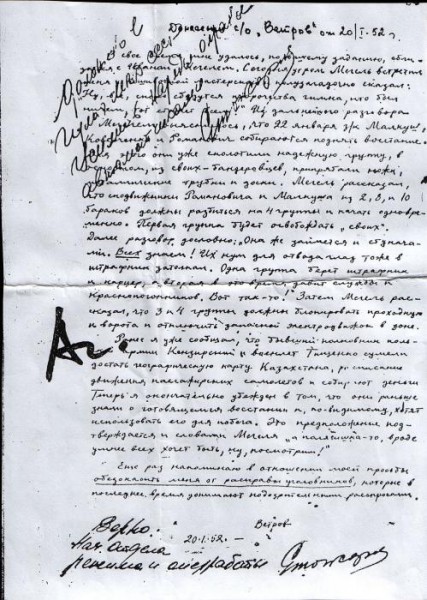 Донесение с/о „Ветров" от 20/I-52 г.
В свое время мне удалось, по Вашему заданию, сбли-
зиться с Мегелем. Сегодня утром Мегель встретил
меня
сказал:
Из дальнейшего разговора
, что 22 января з/к Малкуш,
и Романович собираются поднять восстание.
Для этого они уже сколотили надежную группу, в
основном, из своих - бандеровцев, припрятали ножи,
металлические трубки и доски. Мегель рассказал,
что сподвижники Романовича и Малкуша из 2, 8, и 10
бараков должны разбиться на 4 группы и начать одновре-
менно. Первая группа будет освобождать „своих".
Далее разговор дословно: „Она же займется и стукача-
ми. Всех знаем! Их кум для отвода глаз тоже в
штрафник затолкал. Одна группа берет штрафник
и карцер, а вторая в это время давит службы и
краснопогонников. Вот так-то!" Затем Мегель рас-
сказал, что 3 и 4 группы должны блокировать проходную
и ворота и отключить запасной электродвижок в зоне.
Ранее я уже сообщал, что бывший полковник поль-
армии Кензирский и военлет Тищенко сумели
достать географическую карту Казахстана, расписание
движения пассажирских самолетов и собирают деньги
Теперь я окончательно убежден в том, что они раньше
знали о готовящемся восстании и, по-видимому, хотят
использовать его для побега. Это предположение под-
тверждается и словами Мегеля „а полячишка-то, вроде
умнее всех хочет быть, ну, посмотрим!"
Еще раз напоминаю в отношении моей просьбы
обезопасить меня от расправы уголовников, которые в
последнее время донимают подозрительными расспросами.
Ветров
20.1.52 г.
Аг.
Доложено
Верно:
Нач. отдела
режима и оперработы
Стожаров